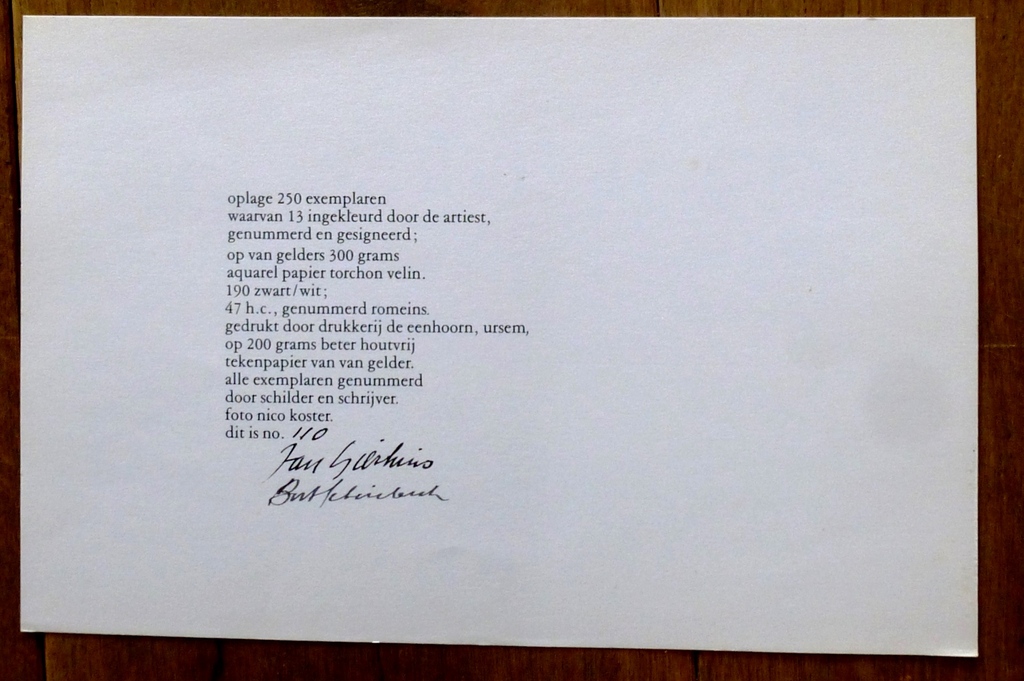 oplage 250 exemplaren
waarvan 13 ingekleurd door de artiest,
genummerd en gesigneerd;
op van gelders 300 grams
aquarel papier torchon velin.
190 zwart/wit;
47 h.c., genummerd romeins.
gedrukt door drukkerij de eenhoorn, ursem,
op 200 grams beter houtvrij
tekenpapier van van gelder.
alle exemplaren genummerd
door schilder en schrijver.
foto nico koster.
dit is no. 110
Jan Sierhuis
Bert Schierbeek